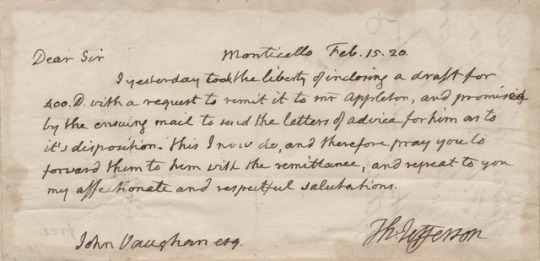 Dear Sir Monticello Feb. 15. 20.
I yesterday took the liberty of inclosing a draft for
400. D. with a request to remit it to mr Appleton, and promised
by the ensuing mail to send the letters of advice for him as to
it's disposition. this I now do, and therefore pray you to
forward them to him with the remittance, and repeat to you
my affectionate and respectful salutations.
Th: Jefferson
John Vaughan esq.